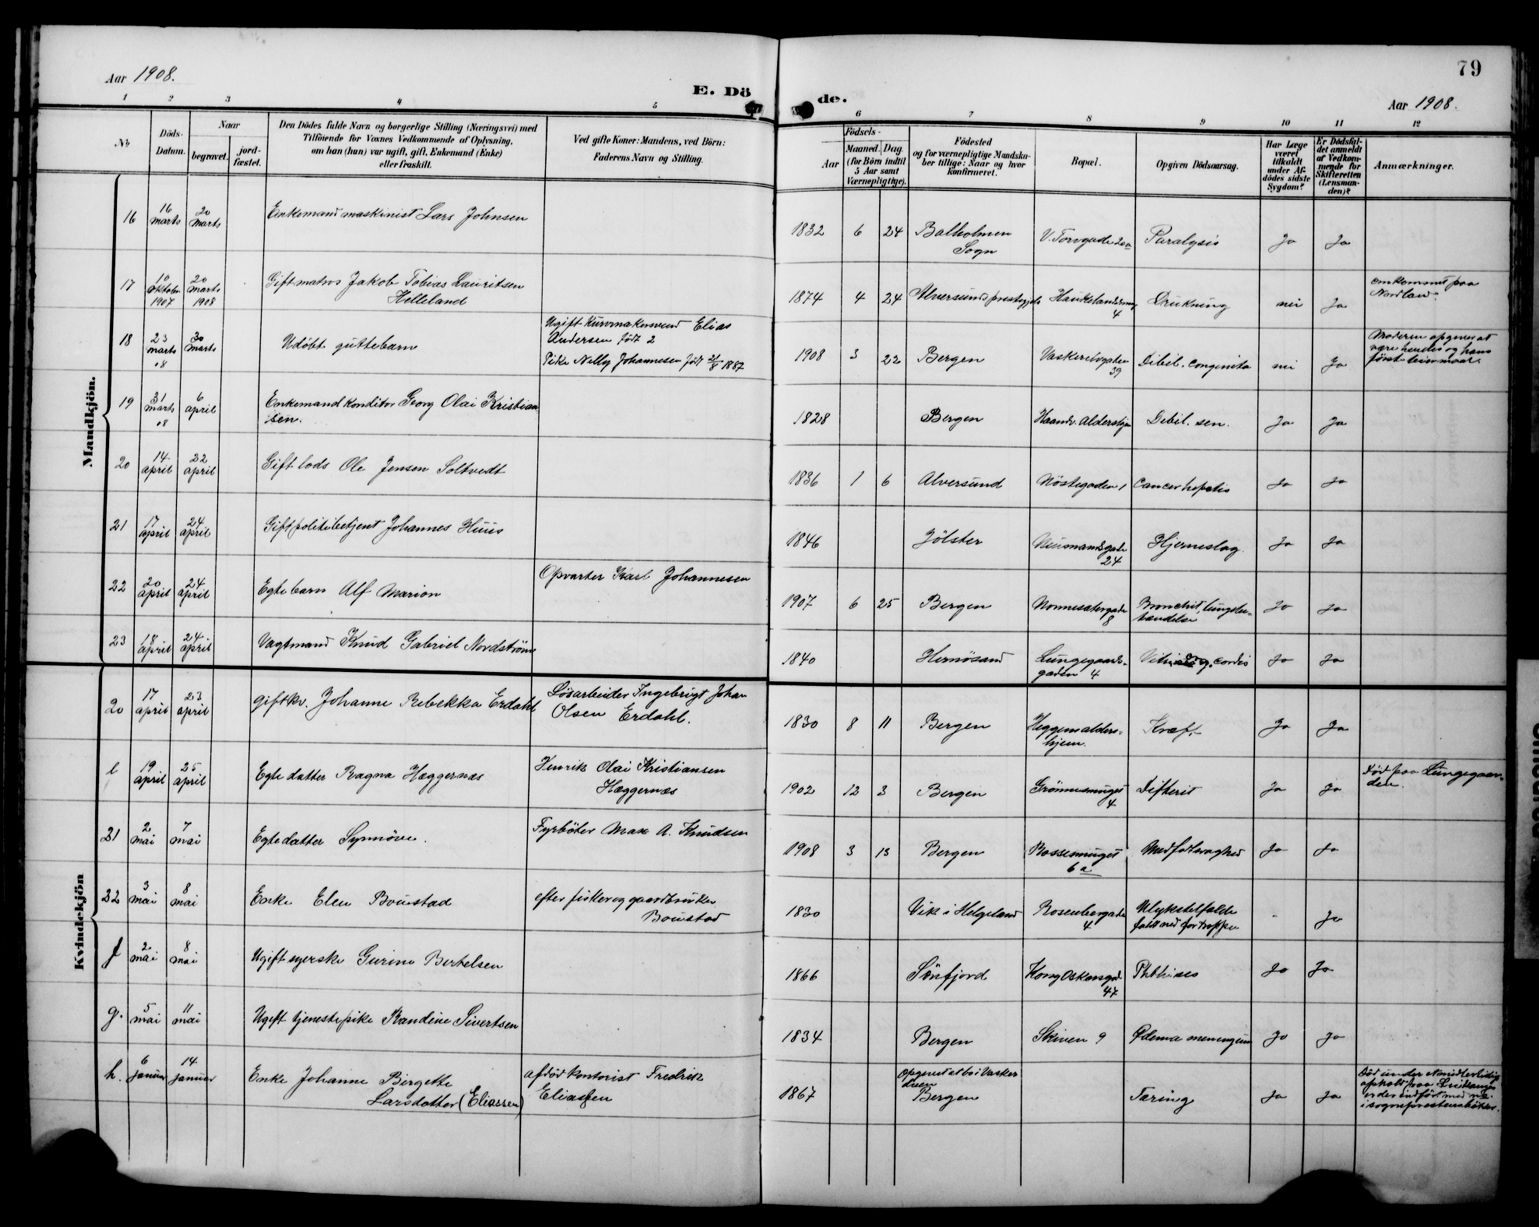 79
Aar 1908.
E. Dö de.
Aar 1908.
1 2 3 4 5 6 7 8 9 10 11 12
№
Döds-Datum.
Naar
begravet.
jord-fæstet.
Den Dödes fulde Navn og borgerlige Stilling (Næringsvei) med
Tilföiende for Voxnes Vedkommende af Oplysning,
om han (hun) var ugift, gift, Enkemand (Enke)
eller fraskilt.
Ved gifte Koner: Mandens, ved Börn:
Faderens Navn og Stilling.
Födsels-
Aar
Maaned Dag
(for Börn indtil
5 Aar samt
Værnepligtige).
Födested
og for værnepligtige Mandska-
ber tillige: Naar og hvor
konfirmeret.
Bopæl.
Opgiven Dödsaarsag.
Har Læge
været
tilkaldt
under Af-
dödes sidste
Sygdom?
Er Dödsfal-
det anmeldt
af Vedkom-
mende for
Skifteretten
(Lensman-
den)?
Anmærkninger.
Mandkjön.
16 16 marts 20 marts Enkemand maskinist Lars Johnsen 1832 6 24 Balholmen Sogn V. Torvgade 20a Paralysis Ja Ja
17 10 oktober 1907 20 marts 1908 Gift matros Jakob Tobias Lauritsen Helleland 1874 4 24 Alversund prestegjeld Haukelandsveg 4 Drukning nei Ja omkommet paa Nordland.
18 23 marts 08 30 marts Udöbt guttebarn Ugift Kurvmakersvend Elias Andersen født 2 Pike Nelly Johannesen født 1887 1908 3 22 Bergen Vaskerelvgaten 39 Debil. congenita nei Ja Moderen opgives at være hendes og hans først
19 31 marts 08 6 april Enkemand konditor Georg Olai Kristiansen. 1828 Bergen Haandv. Aldershjem Debil. sen. Ja Ja
20 14 april 22 april Gift lods Ole Jensen Soltvedt 1836 1 6 Alversund Nøstegaden 1 Cancer hepatis Ja Ja
21 17 april 24 april Gift politibetjent Johannes Huus 1846 Jølster Neumansgade 24 Hjerneslag Ja Ja
22 20 april 24 april Egte barn Alf Marion Opvarter Karl Johannesen 1907 6 25 Bergen Nonnesætergade 8 Bronchit, lungebetændelse Ja Ja
23 18 april 24 april Vagtmand Knud Gabriel Nordstrøm 1840 Hernøsand Lungegaardsgaden 4 Vitium cordis Ja Ja
Kvindekjön
20 17 april 23 april gift kv. Johanne Rebekka Erdahl Løsarbeider Ingebrigt Johan Olsen Erdahl. 1830 8 11 Bergen Heggemaldershjem Kræft Ja Ja
l 19 april 25 april Egte datter Ragna Hæggernæs Henrik Olai Kristiansen Hæggernæs 1902 12 3 Bergen Grönnesmuget 4 Difterit Ja Ja Død paa Lungegaarden.
21 2 mai 7 mai Egte datter Synnöve. Fyrböter Max A. Knudsen 1908 3 13 Bergen Rossesmuget 6a Medfødt svaghed Ja Ja
22 3 mai 8 mai Enke Elen Boustad efter fisker og gaardbruker Boustad 1830 Vik i Helgeland Rosenbergade 4 Ulykstilfælde faldt ned for trappen - Ja
f 2 mai 8 mai Ugift syerske Gurine Bertelsen 1866 Sönfjord Kong Oskarsgade 47 Phthisis Ja Ja
g. 5 mai 11 mai Ugift tjenestepike Randine Sivertsen 1834 Bergen Skiven 9 Ødema meningium Ja Ja
h. 6 januar 14 januar Enke Johanne Birgette Larsdatter (Eliassen) afdød kontorist Fredrik Eliassen 1867 Bergen Tæring Ja Ja Död under et midlertidig ophold paa